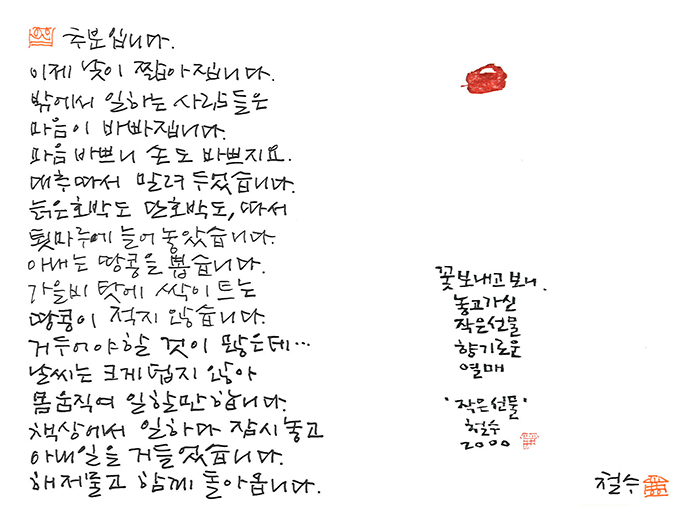 추분입니다.
이제 낮이 짧아집니다.
밖에서 일하는 사람들은
마음이 바빠집니다.
마음 바쁘니 손도 바쁘지요.
대추따서 말려 두었습니다.
늙은호박도 단호박도, 따서
툇마루에 들여 놓았습니다.
아내는 땅콩을 뽑습니다.
가을비 탓에 싹이 트는
땅콩이 적지 않습니다.
거두어야할 것이 많은데…
날씨는 크게 덥지 않아
몸 움직여 일할만 합니다.
책상에서 일하다 잠시 놓고
아내일을 거들었습니다.
해저물고 함께 돌아옵니다.
꽃 보내고 보니,
놓고가신
작은선물
향기로운
열매
'작은선물'
철수
2000
철수